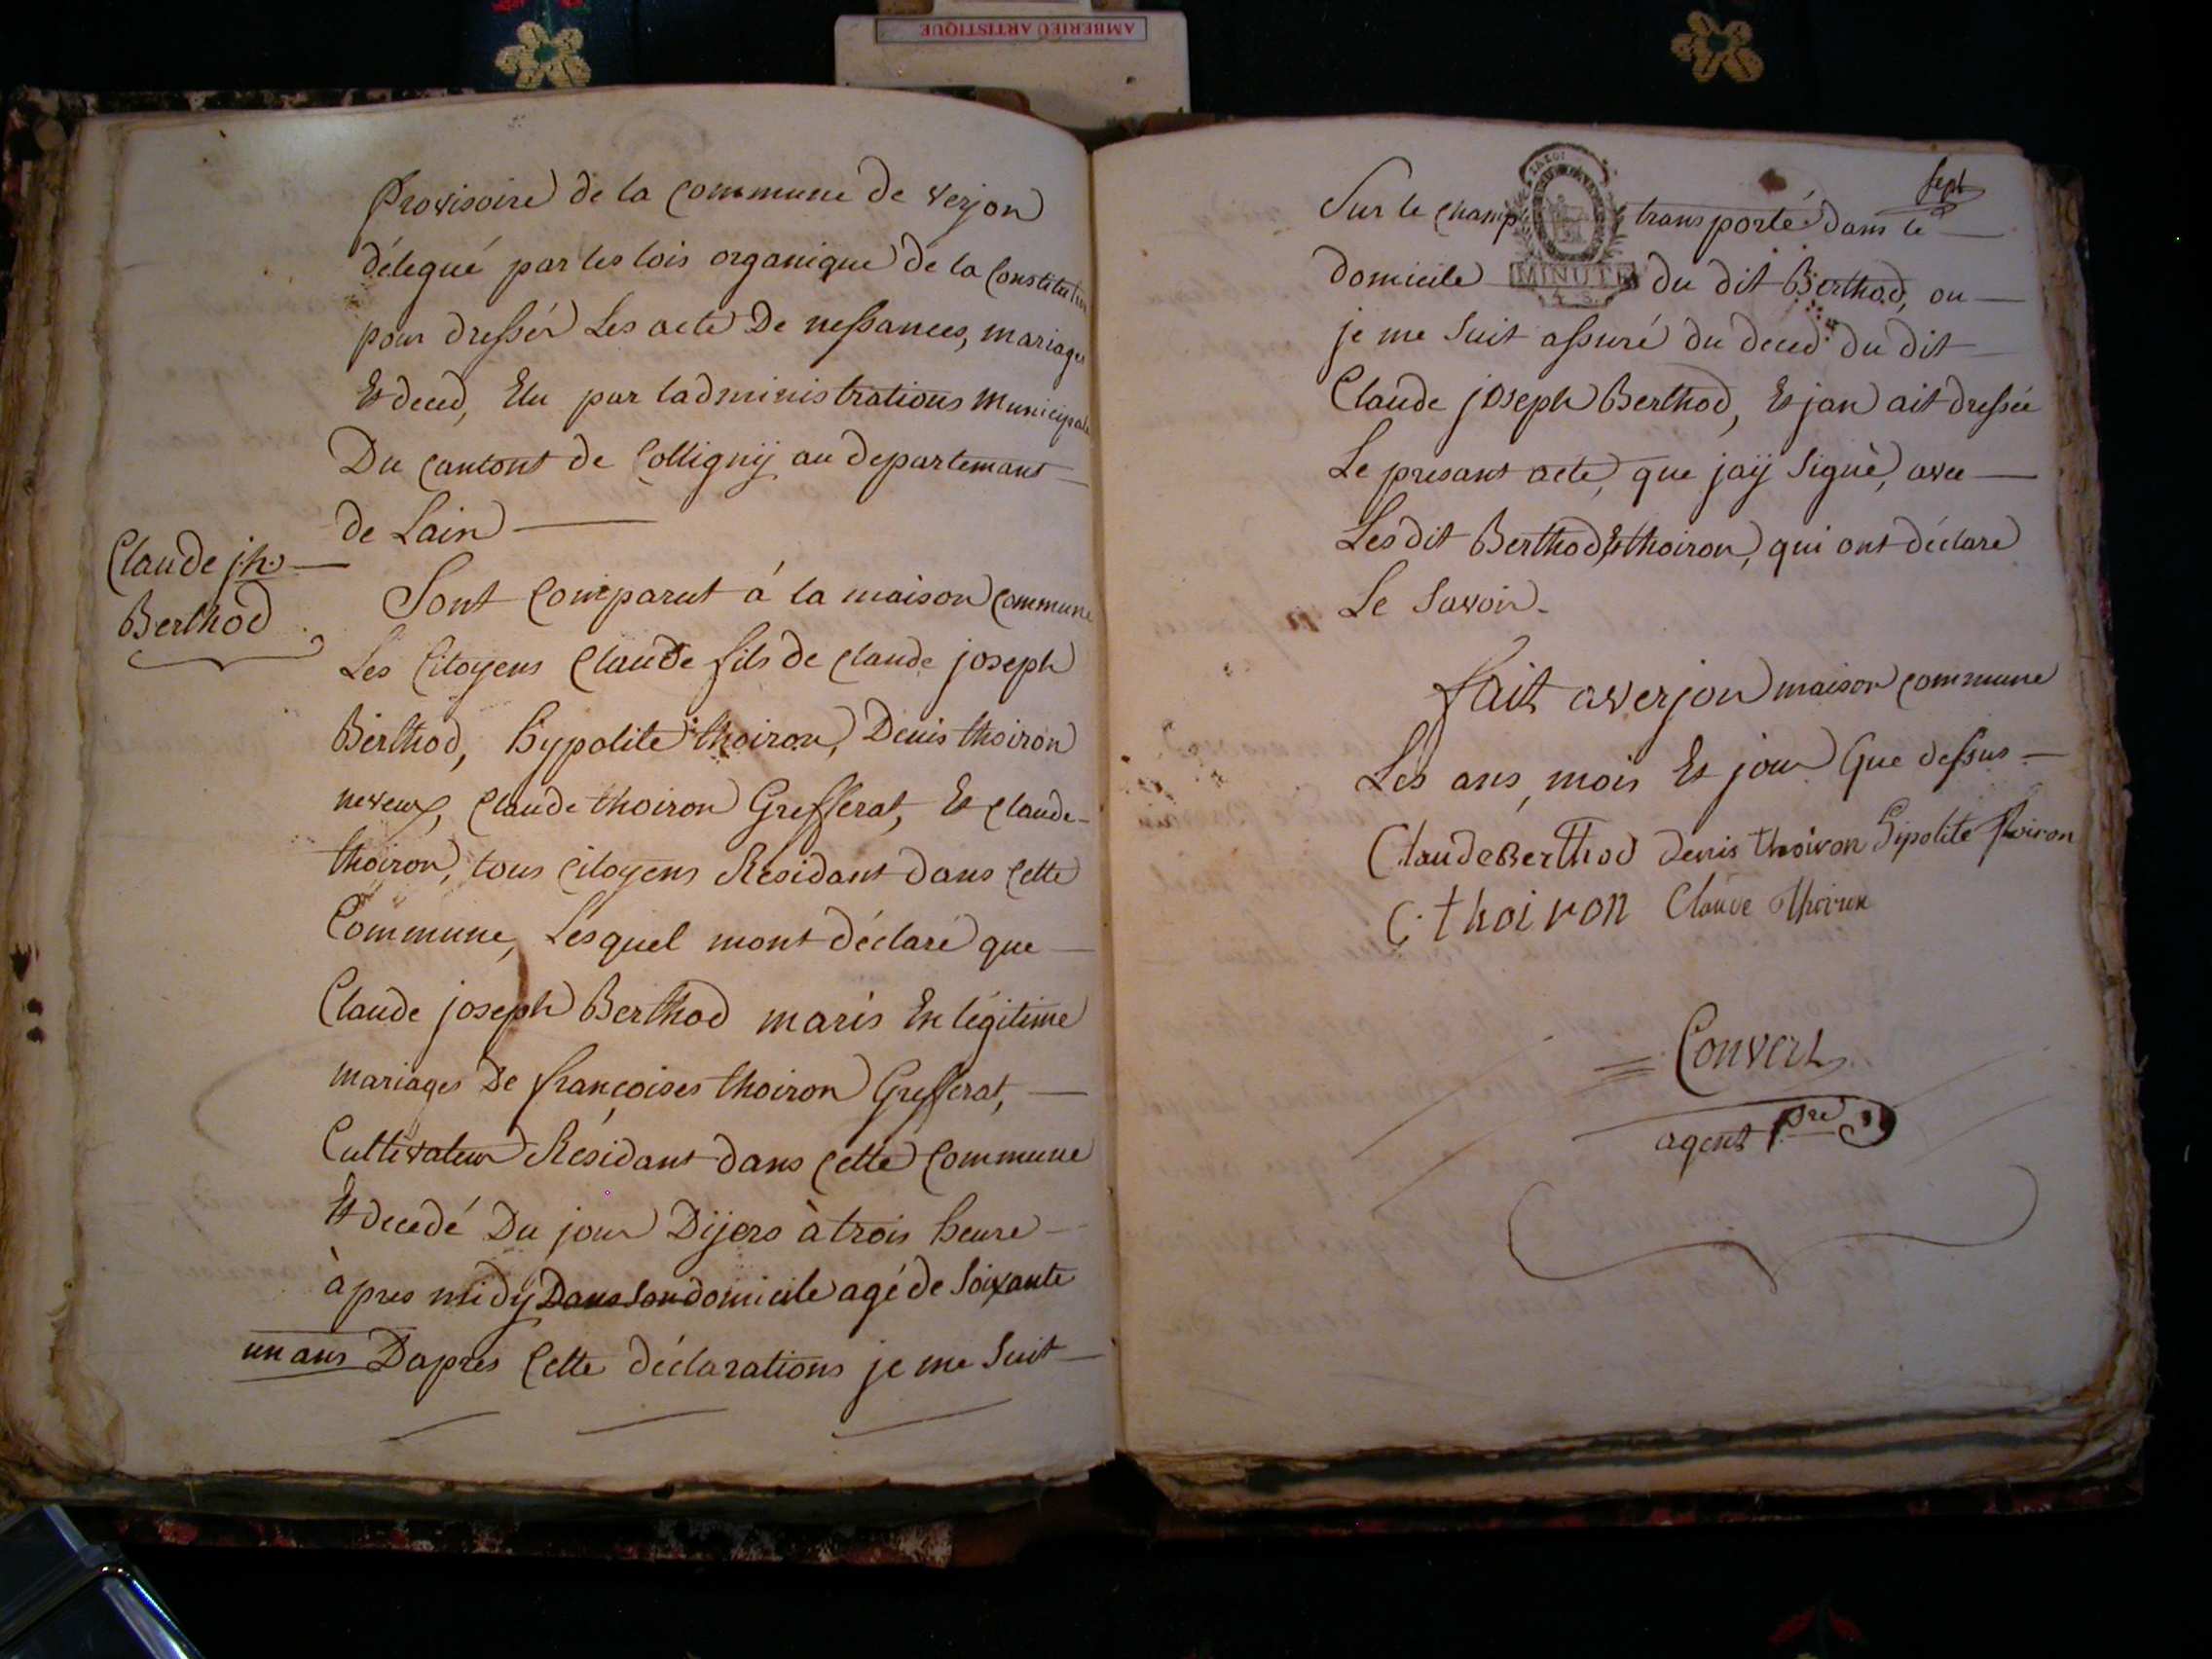 AMBERIEU ARTISTIQUE
provisoire de la Commune de verjon
délegué par les lois organique de la Constitution
pour dressér Les acte De nessances, mariages
Et deced, Elu par ladministrations municipale
Du Cantont de Colligniÿ au departemant
de Lain
Claude j.h.
Berthod
Sont Comparut á la maison Commune
Les Citoyens Claude fils de Claude joseph
Berthod, hypolite thoiron, Denis thoiron
neveux, Claude thoiron Grefferat, Et Claude
thoiron, tous Citoyens Residant dans Cette
Commune, Lesquel mont déclaré que
Claude joseph Berthod maris En légitime
mariages De françoises thoiron Grefferat,
Cultivateur Résidant dans Cette Commune
Et decedé Du jour Dijers à trois heure
àpres midÿ Dans son domicile agé de Soixante
un ans Dapres Cette déclarations je me Suit
Sept
Sur le Champ transporté dans le
domicile MINUTE du dit Berthod, ou
je me Suit assuré du deced du dit
Claude joseph Berthod, Et jan ait dressée
Le presant acte, que jaÿ Signè, avec
Les dit Berthod, Et thoiron, qui ont déclare
Le Savoir.
fait a verjon maison Commune
Les ans, mois Et jour Que dessus
Claude Berthod denis thoiron hipolite thoiron
C. thoiron Claude Thoiron
Convert
agent pre